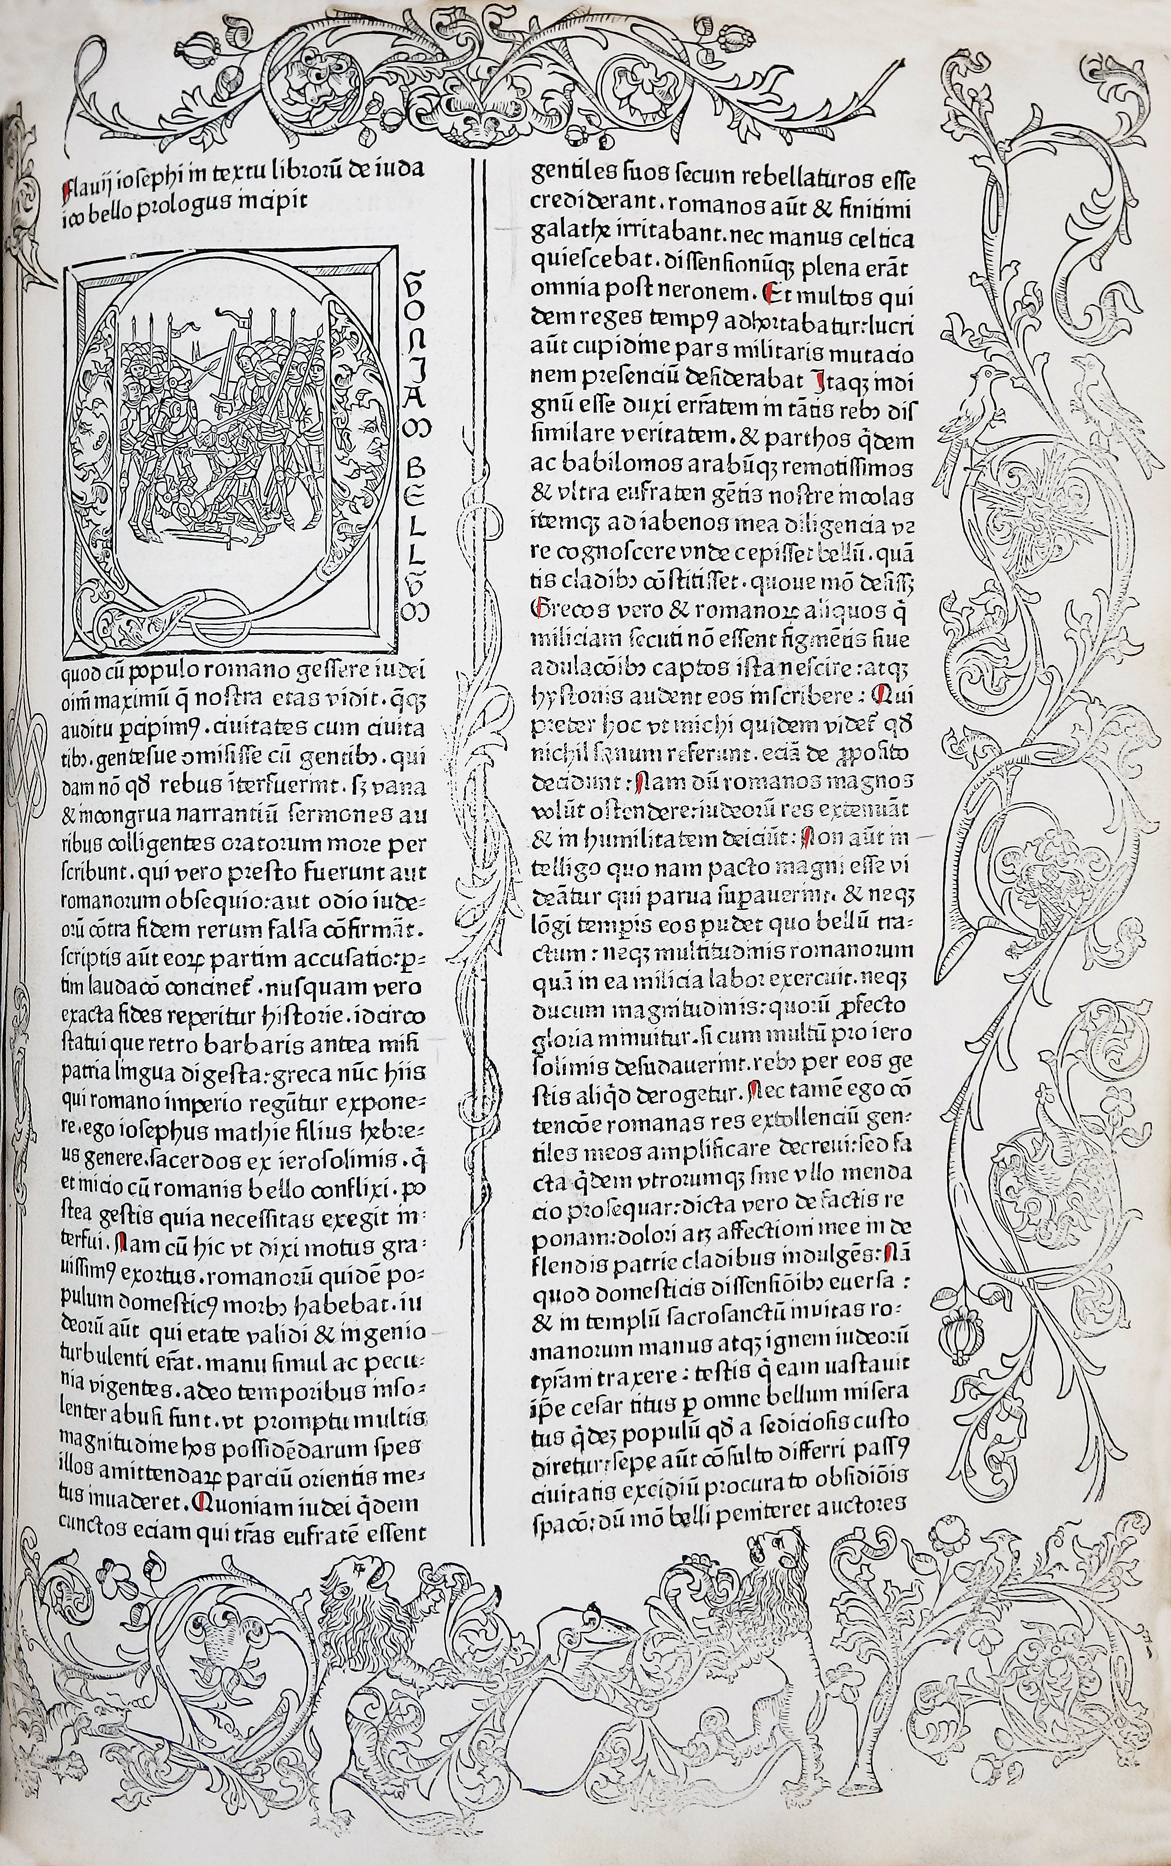 Flauij iosephi in textu librorū de iuda
ico bello prologus incipit
QVONIAM BELLVM
quod cū populo romano gessere iudei
oīm maximū q̄ nostra etas vidit. q̄qꝫ
auditu ꝑcipimꝰ. ciuitates cum ciuita
tibꝫ. gentesue ɔmisisse cū gentibꝫ. qui
dam nō qđ rebus īterfuerint. sꝫ vana
& incongrua narrantiū sermones au
ribus colligentes oratorum more per
scribunt. qui vero presto fuerunt aut
romanorum obsequio: aut odio iude⸗
orū cōtra fidem rerum falsa cōfirmāt.
scriptis aūt eoꝝ partim accusatio: ꝑ⸗
tim laudacō concinet᷑. nusquam vero
exacta fides reperitur historie. idcirco
statui que retro barbaris antea misi
patria lingua digesta: greca nūc hiis
qui romano imperio regūtur expone⸗
re. ego iosephus mathie filius hebre⸗
us genere. sacerdos ex ierosolimis. q̄
et inicio cū romanis bello conflixi. po
stea gestis quia necessitas exegit in⸗
terfui. Nam cū hic vt dixi motus gra⸗
uissimꝰ exortus. romanorū quidē po⸗
pulum domesticꝰ morbꝫ habebat. iu
deorū aūt qui etate validi & ingenio
turbulenti er̄at. manu simul ac pecu⸗
nia vigentes. adeo temporibus inso⸗
lenter abusi sunt. vt promptu multis
magnitudine hos possidēdarum spes
illos amittendaꝝ parciū orientis me⸗
tus inuaderet. Quoniam iudei q̄dem
cunctos eciam qui tr̄as eufratē essent
gentiles suos secum rebellaturos esse
crediderant. romanos aūt & finitimi
galathe irritabant. nec manus celtica
quiescebat. dissensionūqꝫ plena erāt
omnia post neronem. Et multos qui
dem reges tempꝰ adhortabatur: lucri
aūt cupidine pars militaris mutacio
nem presenciū desiderabat Itaqꝫ indi
gnū esse duxi err̄atem in tātis rebꝫ dis
similare veritatem. & parthos q̄dem
ac babilomos arabūqꝫ remotissimos
& vltra eufraten gētis nostre incolas
itemqꝫ adiabenos mea diligencia ve
re cognoscere vnde cepisset bellū. quā
tis cladibꝫ cōstitisset. quoue mō desiss̄ꝫ
Grecos vero & romanoꝝ aliquos q̄
miliciam secuti nō essent figmētis siue
adulacōibꝫ captos ista nescire: atqꝫ
hystoriis audent eos inscribere: Qui
preter hoc vt michi quidem videt᷑ qđ
nichil sanum referunt. eciā de ꝓposito
decidunt: Nam dū romanos magnos
volūt ostendere: iudeorū res extenuāt
& in humilitatem deiciūt: Non aūt in
telligo quo nam pacto magni esse vi
deātur qui parua suꝑauerint. & neqꝫ
lōgi temꝑis eos pudet quo bellū tra⸗
ctum: neqꝫ multitudinis romanorum
quā in ea milicia labor exercuit. neqꝫ
ducum magnitudinis: quorū ꝓfecto
gloria minuitur. si cum multū pro iero
solimis desudauerint. rebꝫ per eos ge
stis aliq̄d derogetur. Nec tamē ego cō
tencōe romanas res extollenciū gen⸗
tiles meos amplificare decreui: sed fa
cta q̄dem vtrorumqꝫ sine vllo menda
cio prosequar: dicta vero de factis re
ponam: dolori atꝫ affectioni mee in de
flendis patrie cladibus indulgēs: Nā
quod domesticis dissensiōibꝫ euersa:
& in templū sacrosanctū inuitas ro⸗
manorum manus atqꝫ ignem iudeorū
tyrāni traxere: testis q̄ eam vastauit
ip̄e cesar titus ꝑ omne bellum misera
tus q̄dez populū qđ a sediciosis custo
diretur: sepe aūt cōsulto differri passꝰ
ciuitatis excidiū procurato obsidiōis
spacō: dū mō belli peniteret auctores